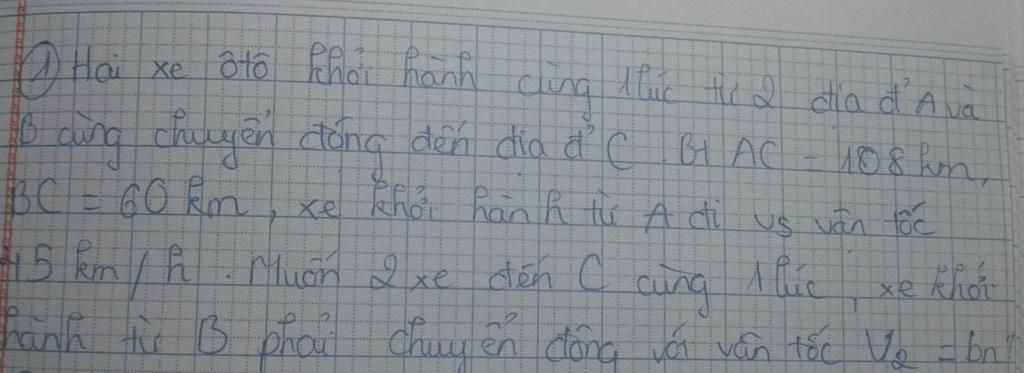 ① Hai xe ôtô khởi hành cùng 1 lúc từ 2 địa đ' A và
B cùng chuyển động đến địa đ' C. Bt AC = 108 km,
BC = 60 km, xe khởi hành từ A đi vs vân tốc
45 km/h. Muốn 2 xe đến C cùng 1 lúc, xe khởi
hành từ B phải chuyển động với vân tốc V2 = bn?